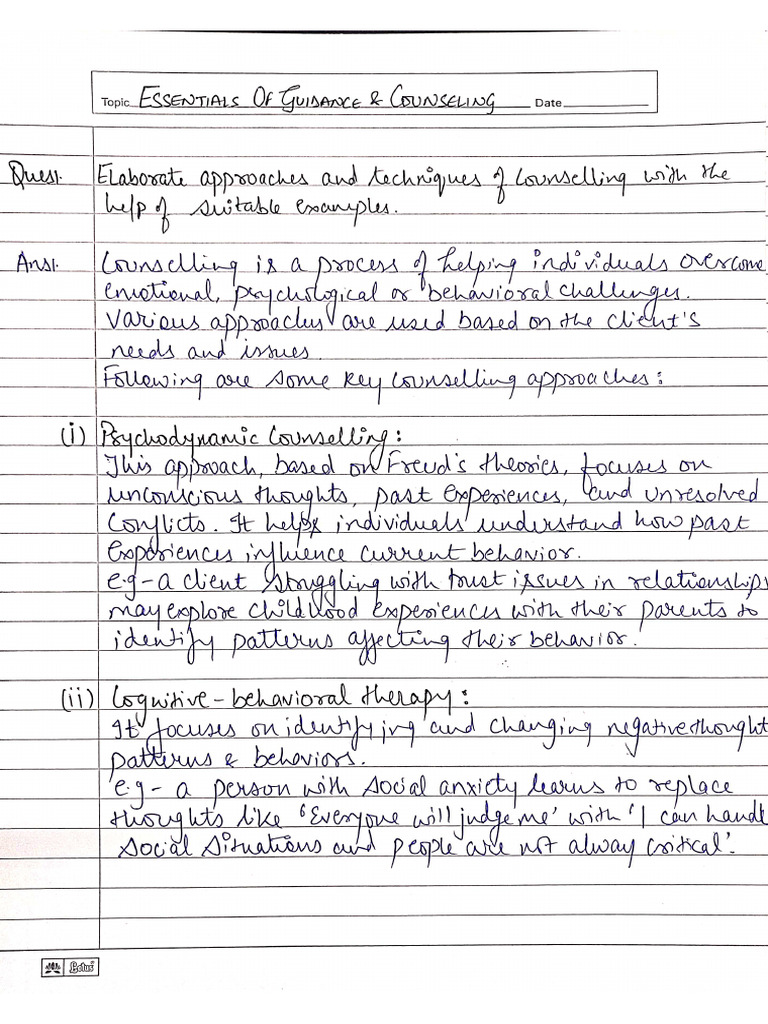 Topic ESSENTIALS OF GUIDANCE & COUNSELING Date
Ques. Elaborate approaches and techniques of Counselling with the
help of suitable examples.
Ans. Counselling is a process of helping individuals overcome
emotional, psychological or behavioral challenges.
Various approaches are used based on the client's
needs and issues.
Following are some key counselling approaches:
(i) Psychodynamic Counselling:
This approach, based on Freud's theories, focuses on
unconscious thoughts, past experiences, and unresolved
conflicts. It helps individuals understand how past
experiences influence current behavior.
e.g - a client struggling with trust issues in relationships
may explore childhood experiences with their parents to
identify patterns affecting their behavior.
(ii) Cognitive - behavioral therapy:
It focuses on identifying and changing negative thought
patterns & behaviors.
e.g - a person with social anxiety learns to replace
thoughts like 'Everyone will judge me' with 'I can handle
social situations and people are not alway critical'.
Lotus